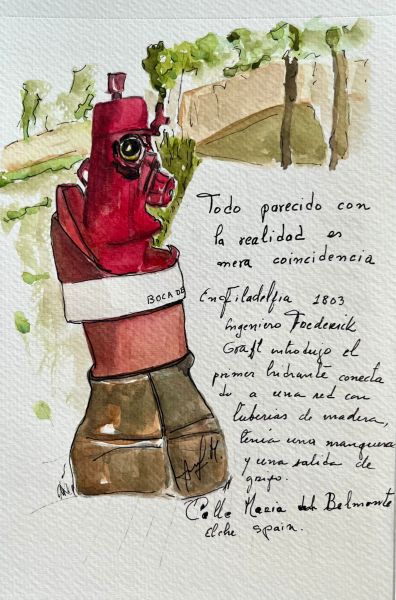 Todo parecido con
la realidad es
mera coincidencia
BOCA DE
En Filadelfia 1803
ingeniero Foederick
Graff introdujo el
primer hidrante conecta
do a una red con
tuberias de madera,
tenia una manguera
y una salida de
grifo.
Calle Maria Belmonte
Elche Spain.